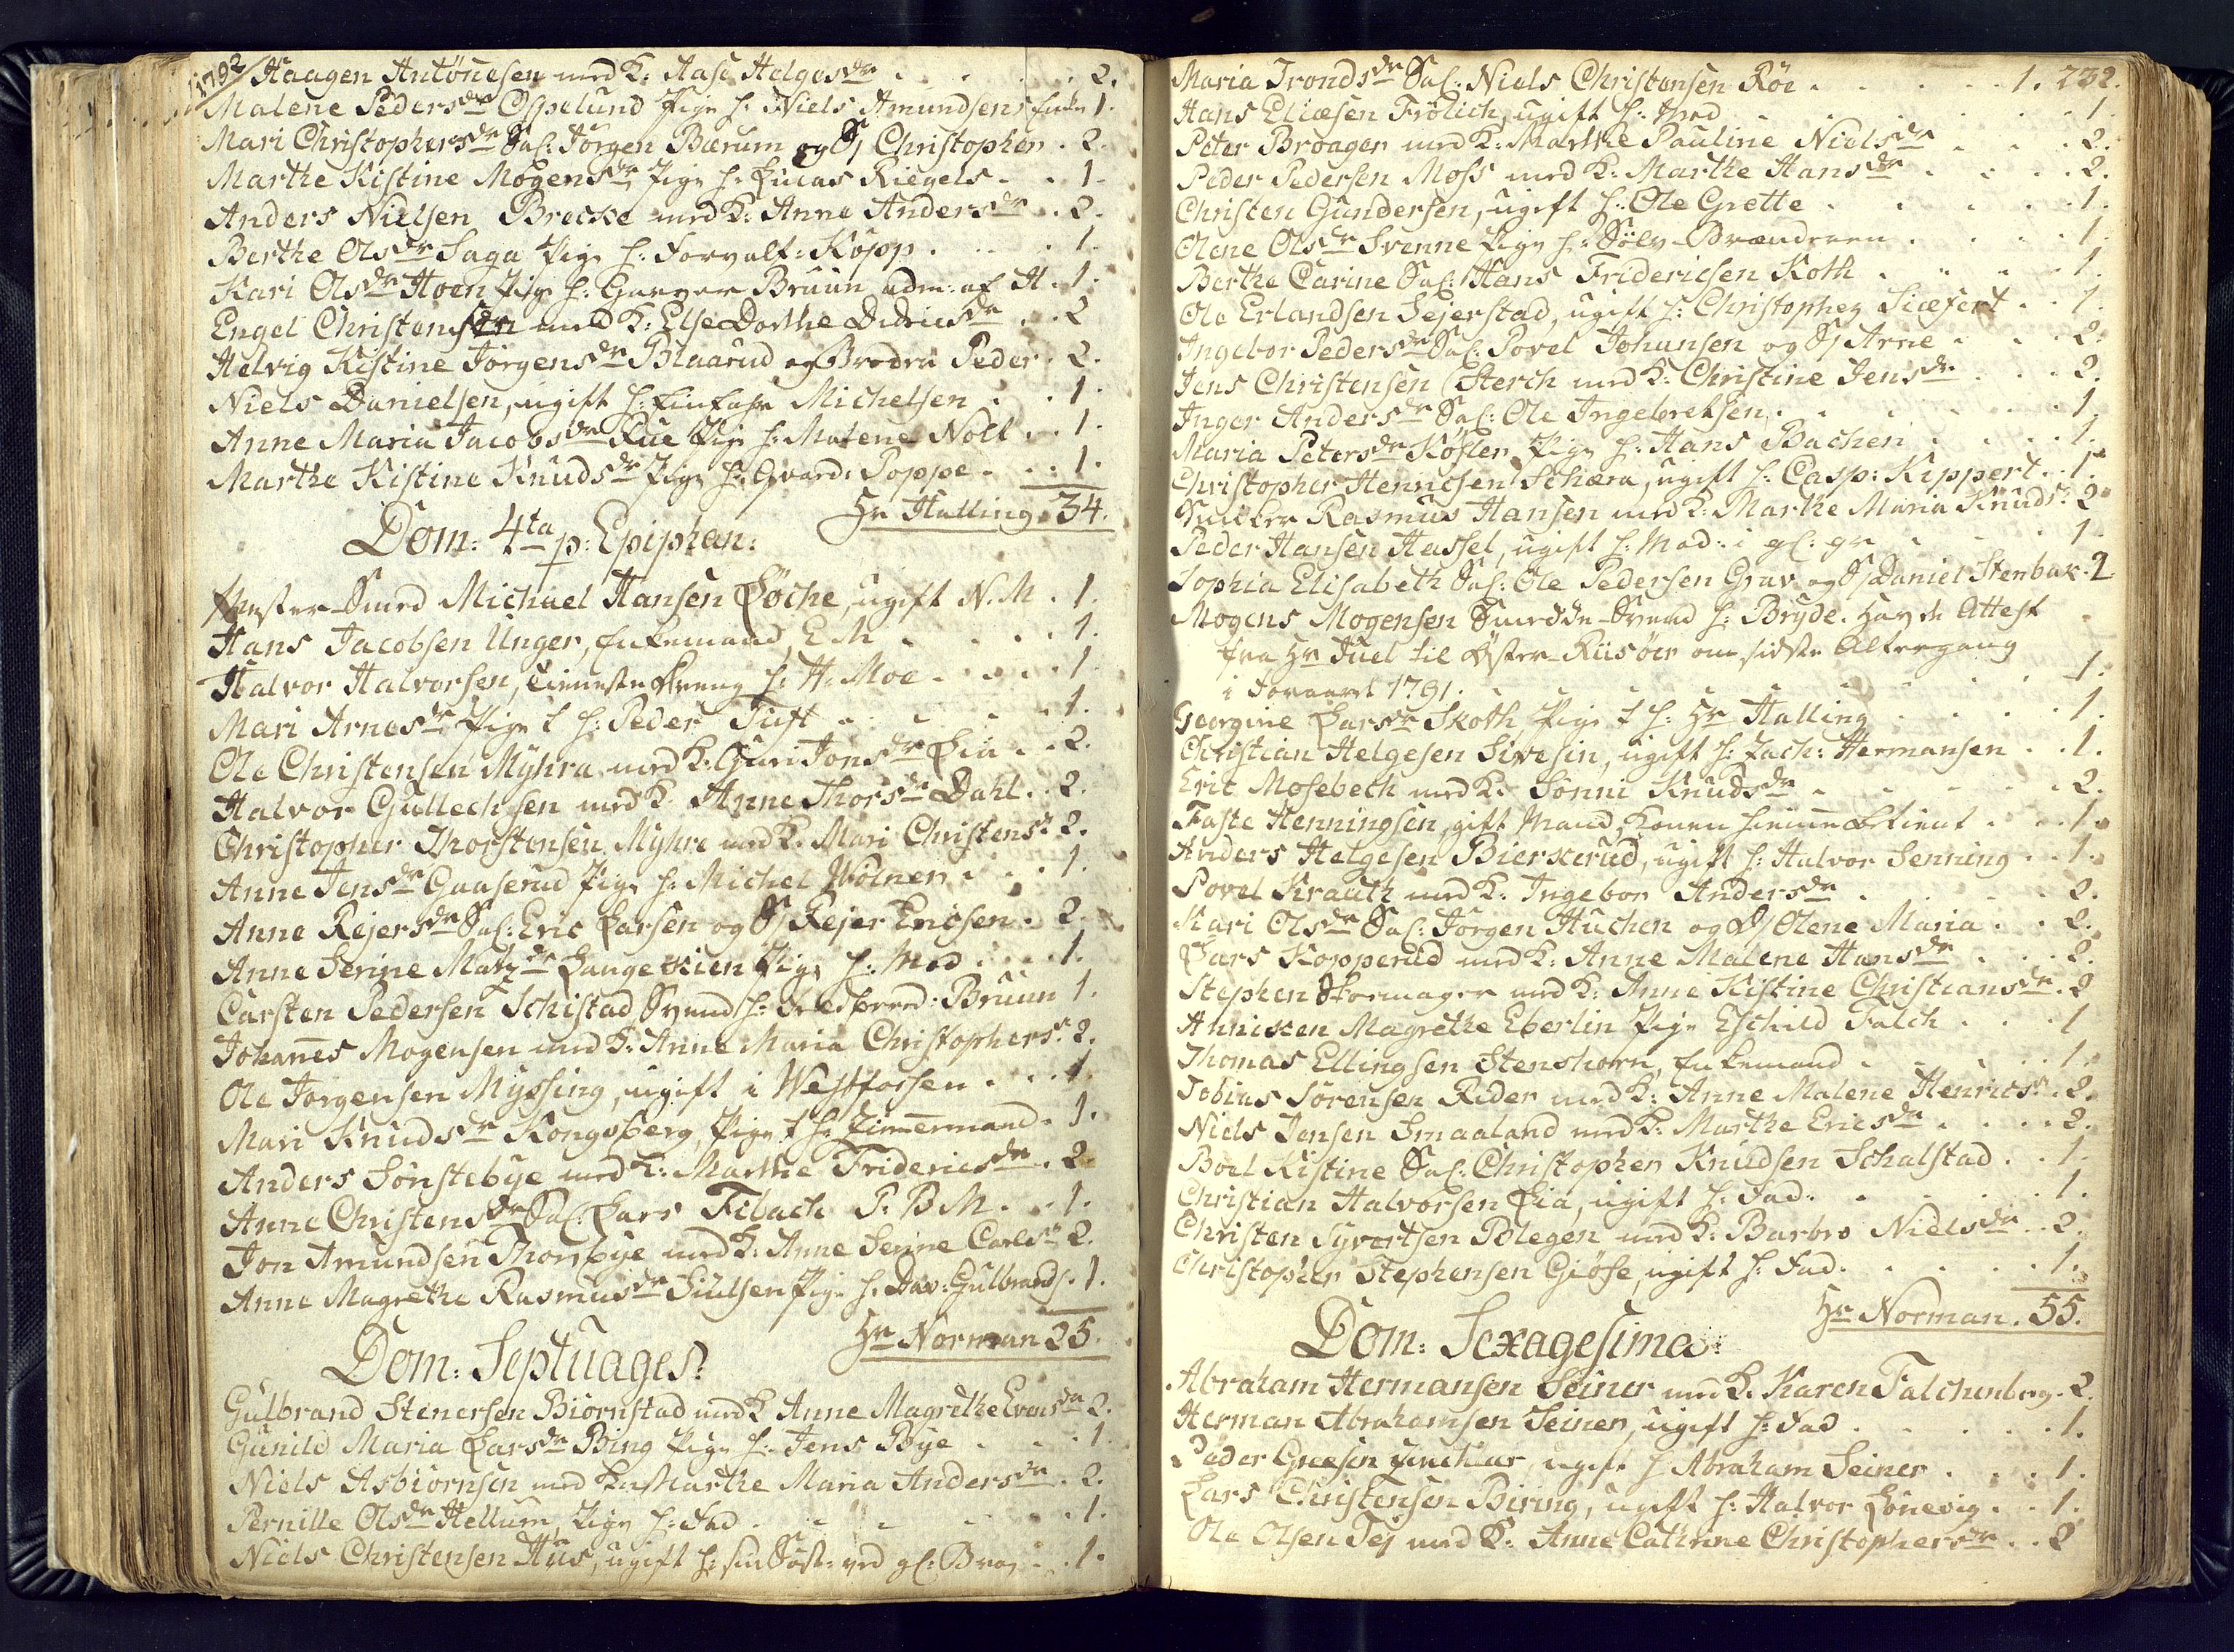 1792
Haagen Antönesen med K: Aase Helgesdr . . . 2.
Malene Pedersdr Ospelund Pige h: Niels Amundsens Enke 1.
Mari Christophersdr Sal: Jörgen Bærum og S Christopher . 2.
Marthe Kistine Mogensdr Pige h: Lucas Riegels . . 1.
Anders Nielsen Brecke med K: Anne Andersdr . . 2.
Berthe Olsdr Saga Pige h: Forvalt: Kopp . . . 1.
Kari Olsdr Hoen Pige h: Garver Bruun adm: af H . 1.
Engel Christensen med K: Else Dorthe Didricsdr . . 2
Helvig Kistine Jörgensdr Blaarud og Broder Peder . 2.
Niels Danielsen, ugift h: Michelsen . . 1.
Anne Maria Jacobsdr Rue Pige h: Malene Noll . . 1.
Marthe Kistine Knudsdr Pige h: Gvard: Poppe . . . 1.
Hr Halling . 34.
Dom: 4ta p: Epiphan:
Mester-Smed Michael Hansen Löche, ugift N. M . 1.
Hans Jacobsen Unger, Enkemand, E M . . . 1.
Halvor Halvorsen, Tieneste Dreng h: H: Moe . . . 1.
Mari Arnesdr Pige t h: Peder Tuft . . . 1.
Ole Christensen Myhra med K: Guri Jonsdr Lia . . 2.
Halvor Gullechsen med K. Anne Thorsdr Dahl . . 2.
Christopher Thorstensen Myhre med K. Mari Christensd 2.
Anne Jensdr Gaaserud Pige h: Michel Wölner . . . 1.
Anne Rejersdr Sal: Eric Larsen og S Rejer Ericsen . 2.
Anne Serine Matzdr Langekien Pige h: Mod . . . 1.
Carsten Pedersen Schistad Svend h: Bruun 1.
Johannes Mogensen med K: Anne Maria Christophersd. 2.
Ole Jorgensen Myssing, ugift i Westfossen . . . 1.
Mari Knudsdr Kongsberg, Pige t h: Zimmermand . 1.
Anders Sonstebye med K: Marthe Fridericsdr . 2
Anne Christensdr Sal: Lars Filbach P. B M . . 1.
Jon Amundsen Thorsbye med K: Anne Serine Carlsd 2.
Anne Magrethe Rasmusdr Siulsen Pige h. Dav: Gulbrands . 1.
Hr Norman 25.
Dom: Septuages:
Gulbrand Stenersen Biörnstad med K Anne Magrethe Evensdr 2.
Gunild Maria Larsdr Bing Pige h: Jens Bye . . . 1
Niels Asbiornsen med K Marthe Maria Andersdr . 2.
Pernille Olsdr Hellum, Pige h: Fad . . . 1.
Niels Christensen Hus, ugift h: sin Söst: ved gl: Bro . . 1.
Maria Trondsdr Sal: Niels Christensen Röe . . . 1. 232.
Hans Eliæsen Frölich, ugift h: Mod . . . 1.
Peter Broager med K: Marthe Pauline Nielsdr . . . 2.
Peder Pedersen Moss med K: Marthe Hansdr . . . 2.
Christen Gundersen, ugift h: Ole Grette . . . 1.
Olene Olsdr Svenne Pige h: Sölv-Brænderen . . . 1.
Berthe Carine Sal: Hans Fridericsen Koth . . . 1.
Ole Erlandsen Sejerstad, ugift h: Christopher Siæfert . . 1.
Ingebor Pedersdr Sal: Povel Johansen og S Arne . . . 2.
Jens Christensen Sterch med K: Christine Jensdr . . . 2.
Inger Andersdr Sal: Ole Ingebretsen . . . 1.
Maria Petersdr Kosler Pige h: Hans Bachen . . . 1.
Christopher Henricsen Schæra, ugift h: Casp: Kippert . . 1.
Rasmus Hansen med K: Marthe Maria Knuds: 2
Peder Hansen Hassel, ugift h: Mod: i gl: gr . . . 1.
Sophia Elisabeth Sal: Ole Pedersen Grav og S Daniel Stenbak . 2
Mogens Mogensen Smedde-Svend h: Bryde. Havde Attest
fra Hr Juel til Öster-Riisöer om sidste Altergang
i Foraaret 1791. . . . 1.
Georgine Larsdr Skoth Pige t h: Hr Halling . . . 1.
Christian Helgesen Sivesin, ugift h: Zach: Hermansen . . 1.
Eric Mosebech med K: Sonni Knudsdr . . . 2.
Faste Henningsen, gift Mand, Konen hiemme . . . 1.
Anders Helgesen Bierkerud, ugift h: Halvor Senning . . 1.
Povel Krauth med K: Ingebor Andersdr . . . 2.
Kari Olsdr Sal: Jörgen Huchen og D Olene Maria . . 2.
Lars Kopperud med K: Anne Malene Hansdr . . . 2.
Stephen Skomager med K: Anne Kistine Christiansdr . 2
Anniken Magrethe Eberlin Pige Eschild Falch . . . 1
Thomas Ellingsen Stenshorn, Enkemand . . . 1.
Tobias Sörensen Rider med K: Anne Malene Henricsd . 2.
Niels Jensen Smaaland med K: Marthe Ericsdr . . . 2.
Boel Kistine Sal: Christopher Knudsen Schalstad . . 1.
Christian Halvorsen Lia, ugift h: Fad: . . . 1.
Christen Syvertsen Polegen med K: Barbro Nielsdr . . 2.
Christopher Stephensen Giöse, ugift h: Fad: . . . 1.
Hr Norman . 55.
Dom: Sexagesima:
Abraham Hermansen Seiner med K. Karen Falchenberg . 2.
Herman Abrahamsen Seiner, ugift h: Fad . . . 1.
Peder ugift h Abraham Seiner . . . 1.
Lars Christensen Biring, ugift h: Halvor Lönevig . . 1.
Ole Olsen Tej med K: Anne Cathrine Christophersdr . . 2